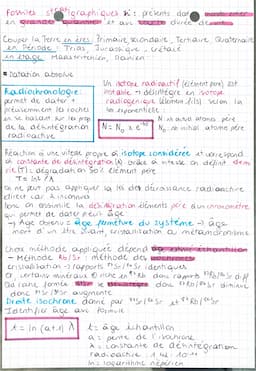 Fossiles stratigraphiques : présents dans
en grande et avec durée de
Couper la Terre en ères : Primaire, secondaire, Tertiaire, Quaternaire
en Période : Trias, Jurassique, Crétacé
en étage : Maastrichtien, Danien
• Datation absolue
Radiochronologie :
permet de dater +
précisément les roches
en se basant sur les prop
de la désintégration
radioactive
Un isotope radioactif (élément père) est
instable → désintègre en isotope
radiogénique (élément fils) selon la
loi exponentielle :
N = N₀ x e
N : nb actuel atomes père
N₀ : nb initial atome père
Réaction à une vitesse propre à isotope considérée et correspond
à constante de désintégration (λ) grâce à vitesse on définit demi
vie (T) : dégradation 50% élément père
on ne peut pas appliquer la loi des décroissance radioactive
direct car 2 inconnus
donc on assemble la désintégration éléments père
qui permet de dater
→ âge obtenu = âge fermeture du système → âge
mort d'un être vivant, cristallisation ou métamorphisme
Choix méthode appliquée dépend
- Méthode Rb/Sr : méthode des
cristallisation → rapports ⁸⁷Sr/⁸⁶Sr identiques
Or, certains minéraux + riche en ⁸⁷Rb donc rapports ⁸⁷Rb/⁸⁶Sr diff
donc ⁸⁷Rb/⁸⁶Sr diminue
donc ⁸⁷Sr/⁸⁶Sr augmente
Droite isochrone donné par ⁸⁷Sr/⁸⁶Sr et ⁸⁷Rb/⁸⁶Sr
Identifier âge avec formule
t = ln (a+1) / λ
t = âge échantillon
a = pente de l'isochrone
λ = constante de désintégration
radioactive
ln = logarithme népérien